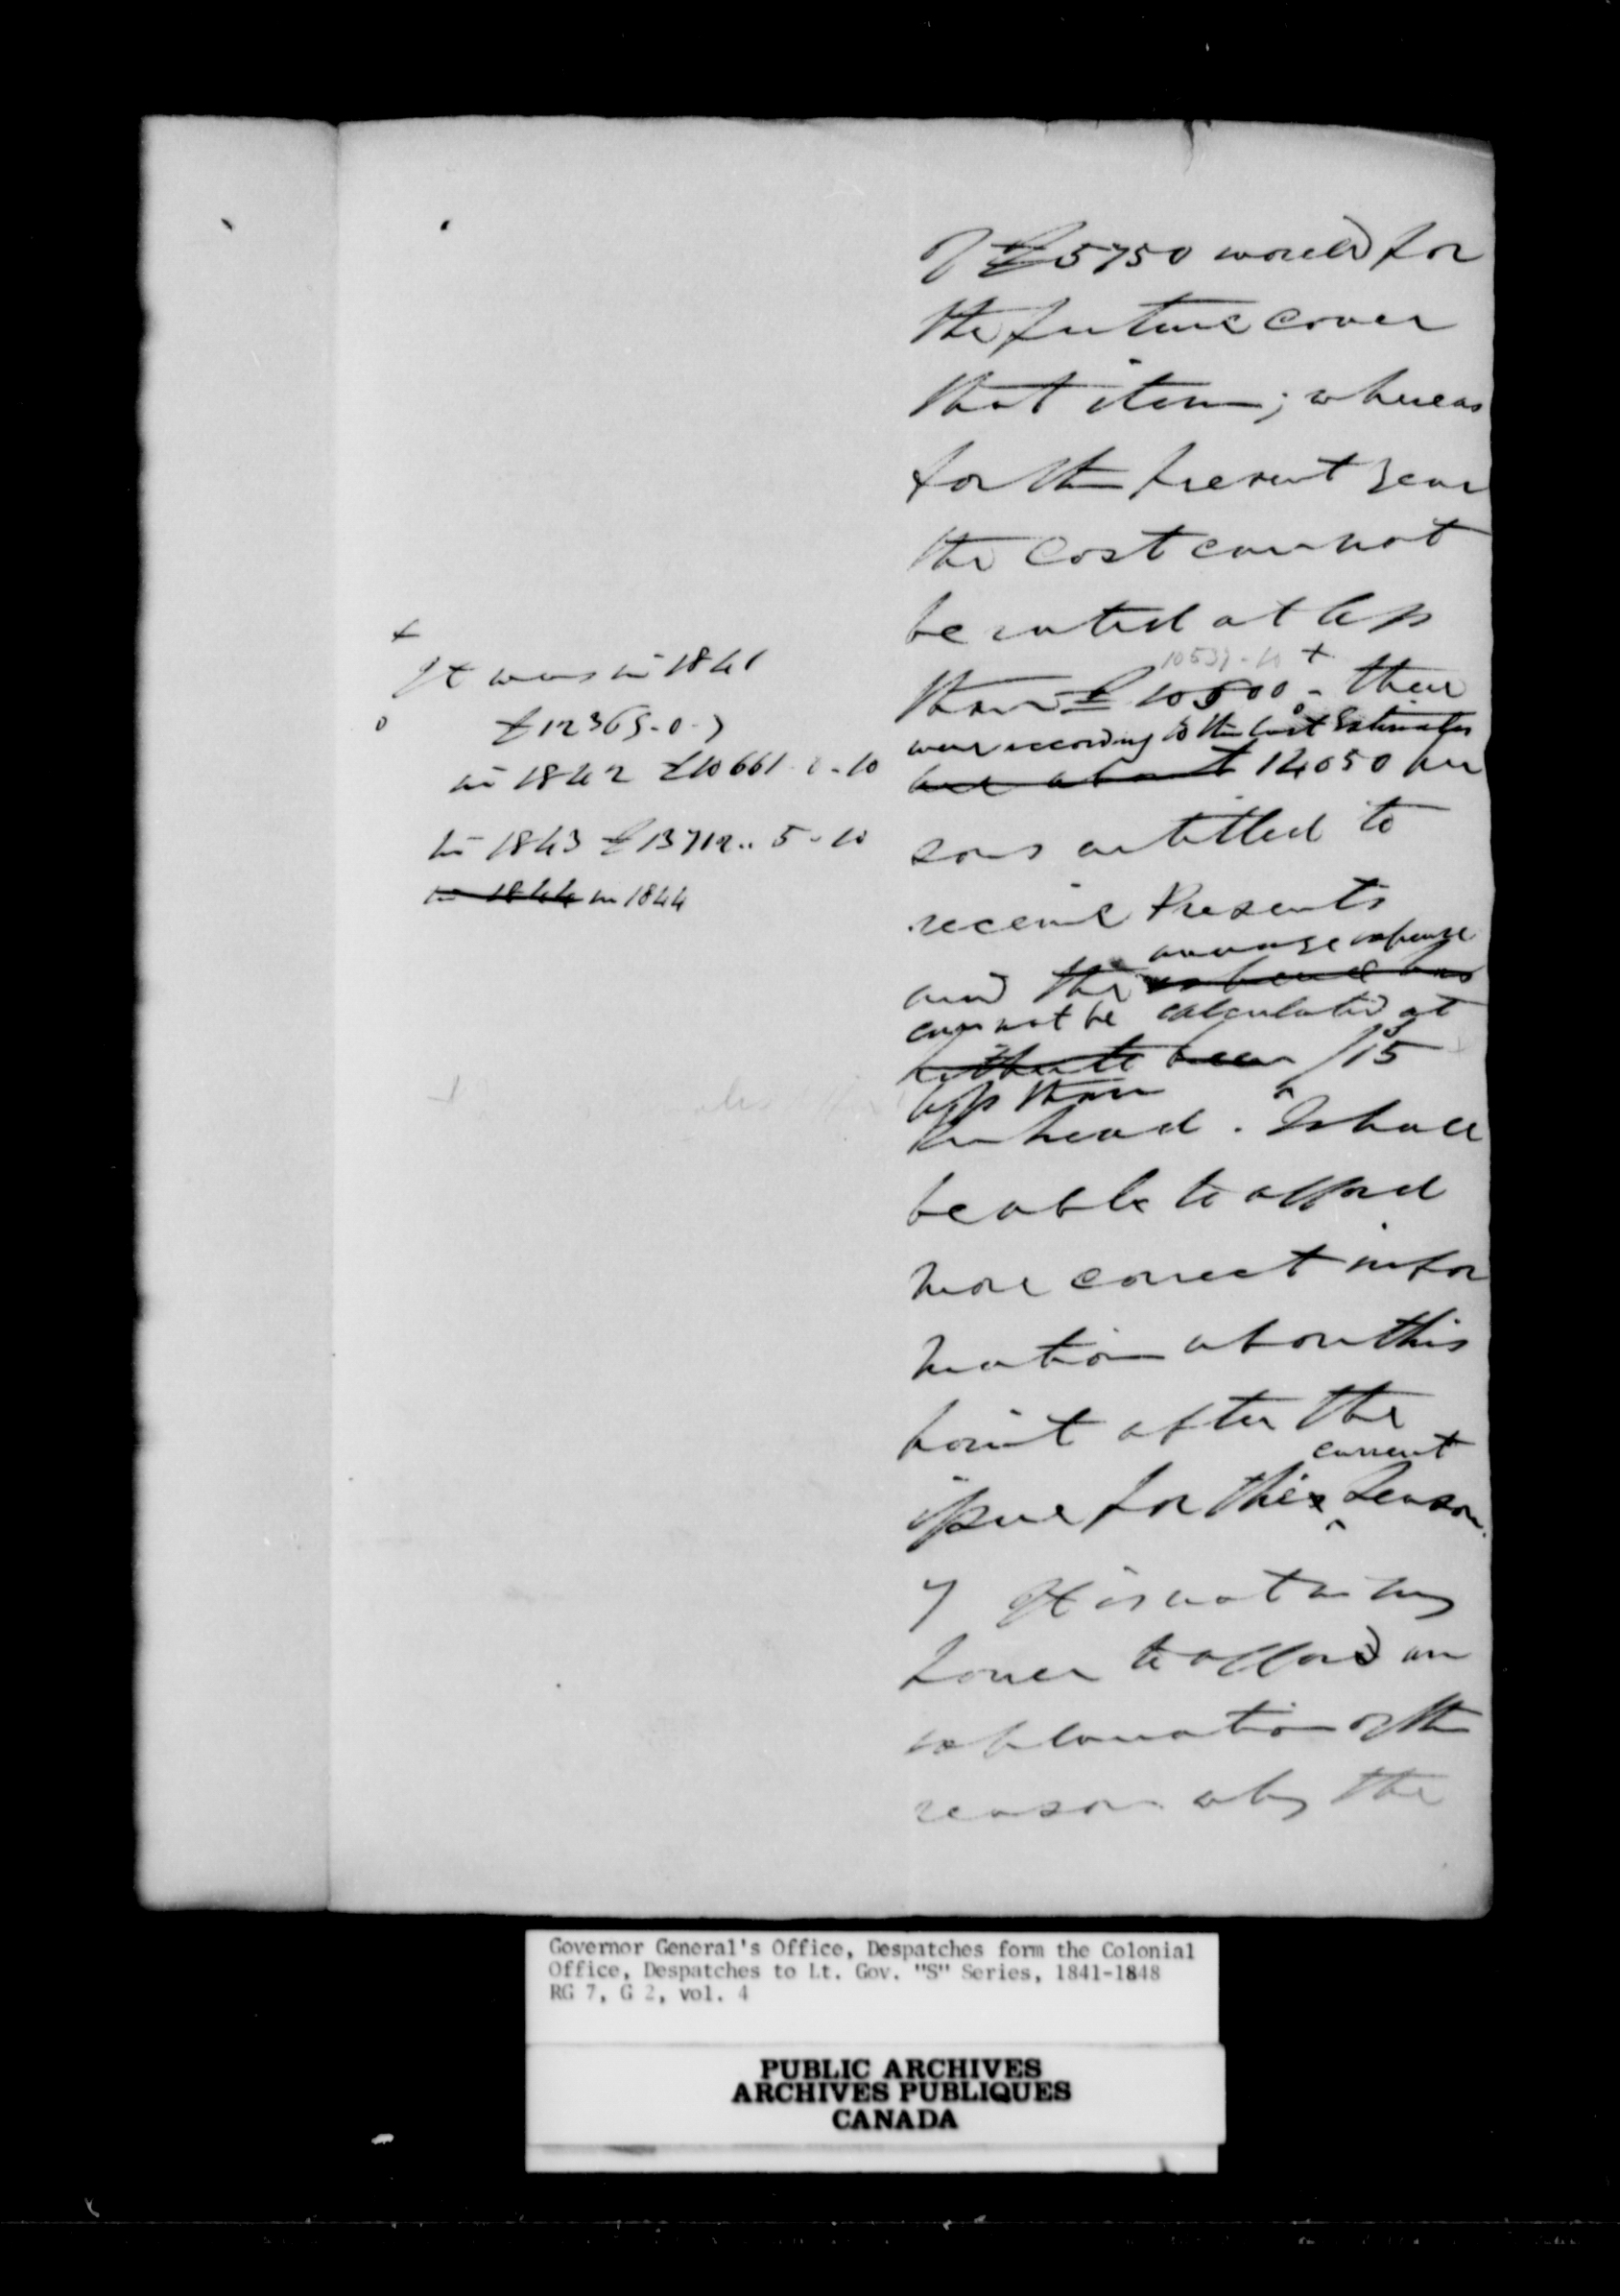 of £5750 would for
the future cover
that item; whereas
for the present year
the cost cannot
be rated at less
10539-10 +
than £10500 - there
were according to the last Estimates
are about 14050 per
sons entitled to
receive Presents
average expense
and the expense has
can not be calculated at
hitherto been /15
less than
per head. I shall
be able to afford
more correct infor
mation above this
point after the
current
issue for this Season.
7 It is not in my
power to afford an
explanation of the
reason why the
+
It was in 1841
£12365-0-7
in 1842 £10661-0-10
in 1843 £13712..5-10
in 1844 in 1844
Governor General's Office, Despatches form the Colonial
Office, Despatches to Lt. Gov. "S" Series, 1841-1848
RG 7, G 2, vol. 4
PUBLIC ARCHIVES
ARCHIVES PUBLIQUES
CANADA